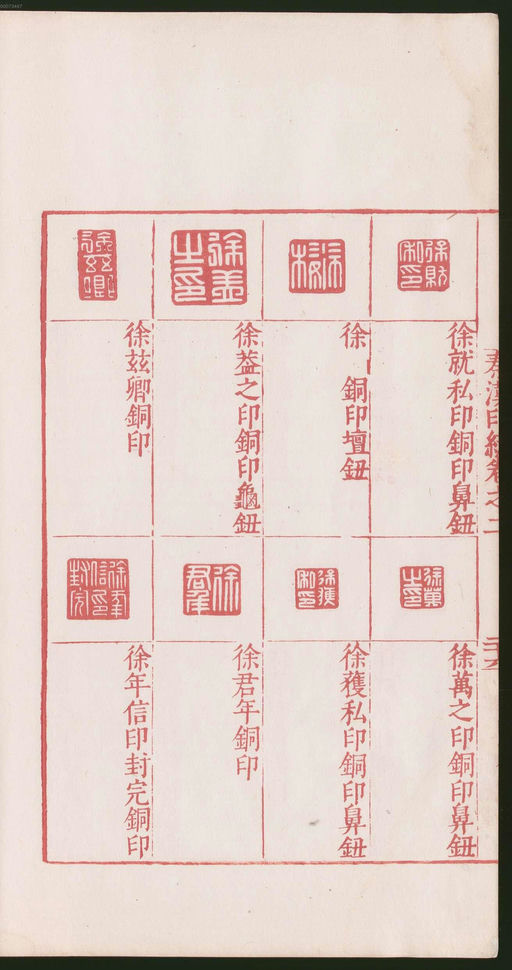 00073447
秦漢印統卷之二
二十六
徐就私印銅印鼻鈕
徐 銅印壇鈕
徐益之印銅印龜鈕
徐茲卿銅印
徐萬之印銅印鼻鈕
徐穫私印銅印鼻鈕
徐君年銅印
徐年信印封完銅印